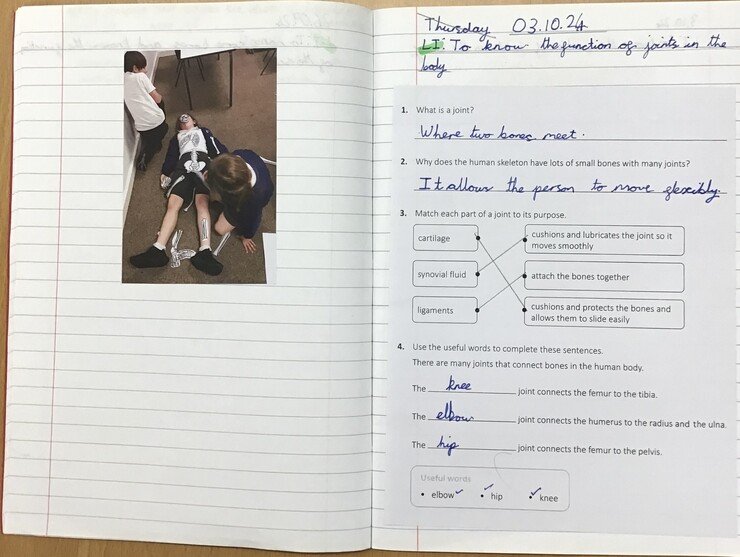 Thursday 03.10.24
LI: To know the function of joints in the
body
1. What is a joint?
Where two bones meet.
2. Why does the human skeleton have lots of small bones with many joints?
It allows the person to move flexibly.
3. Match each part of a joint to its purpose.
cartilage
cushions and lubricates the joint so it
moves smoothly
synovial fluid
attach the bones together
ligaments
cushions and protects the bones and
allows them to slide easily
4. Use the useful words to complete these sentences.
There are many joints that connect bones in the human body.
The knee joint connects the femur to the tibia.
The elbow joint connects the humerus to the radius and the ulna.
The hip joint connects the femur to the pelvis.
Useful words
• elbow ✓ • hip ✓ • knee ✓